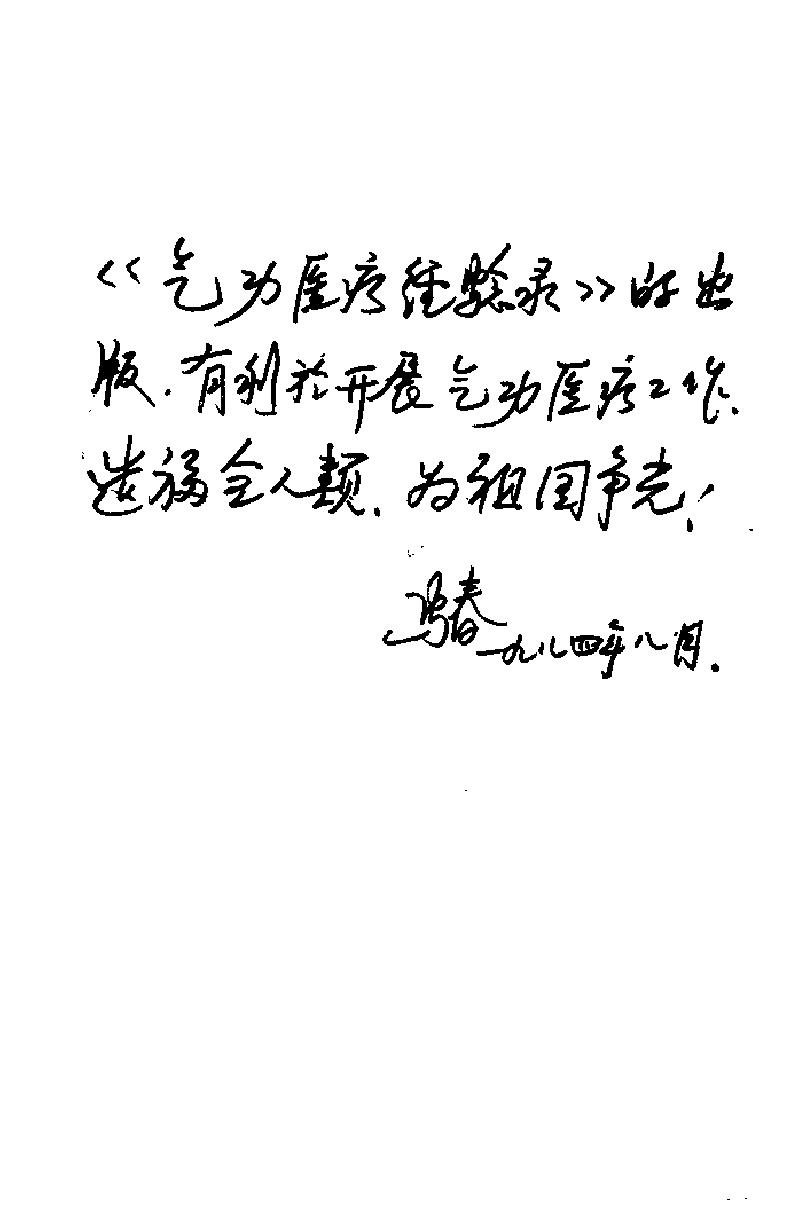 《气功医疗经验录》的出
版，有利於开展气功医疗工作，
造福全人类，为祖国争光！
马春
一九八四年八月．